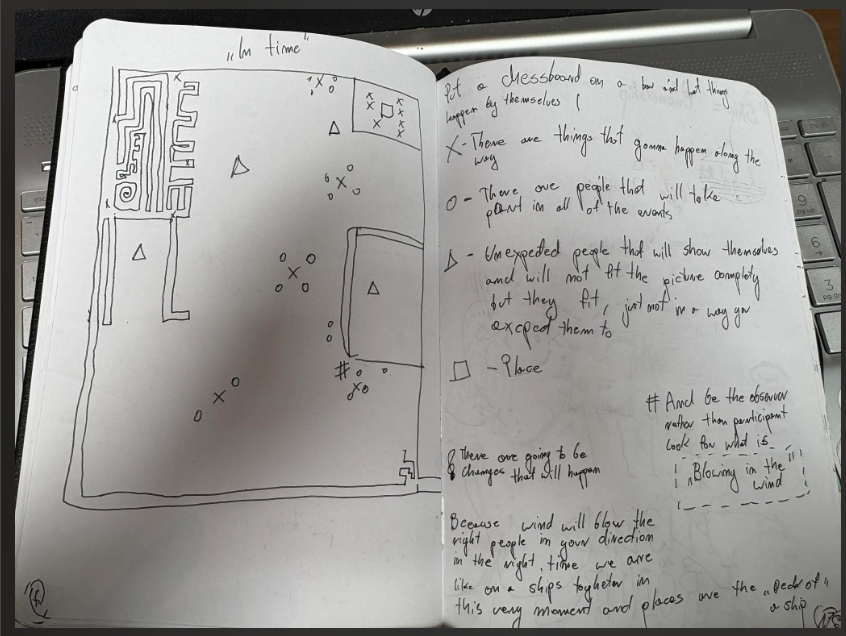 „In time"
Put a chessboard on a bar and let things
happen by themselves !
X - There are things that gonna happen along the
way
O - There are people that will take
part in all of the events
Δ - Unexpected people that will show themselves
and will not fit the picture completly
but they fit, just not in a way you
excped them to
□ - Place
# And be the observer
rather than participant
look for what is
„Blowing in the"
wind
There are going to be
changes that will happen
Because wind will blow the
right people in your direction
in the right, time we are
like on a ships togheter in
this very moment and places are the „Deck of"
a ship